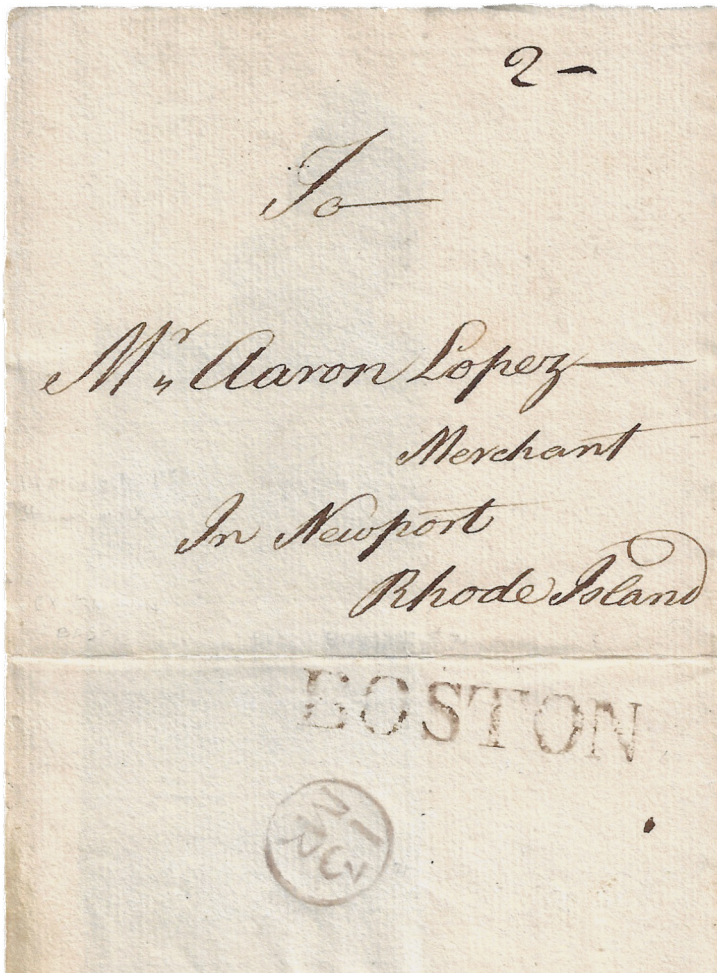 2 –
To
Mr. Aaron Lopez
Merchant
In Newport
Rhode Island
BOSTON